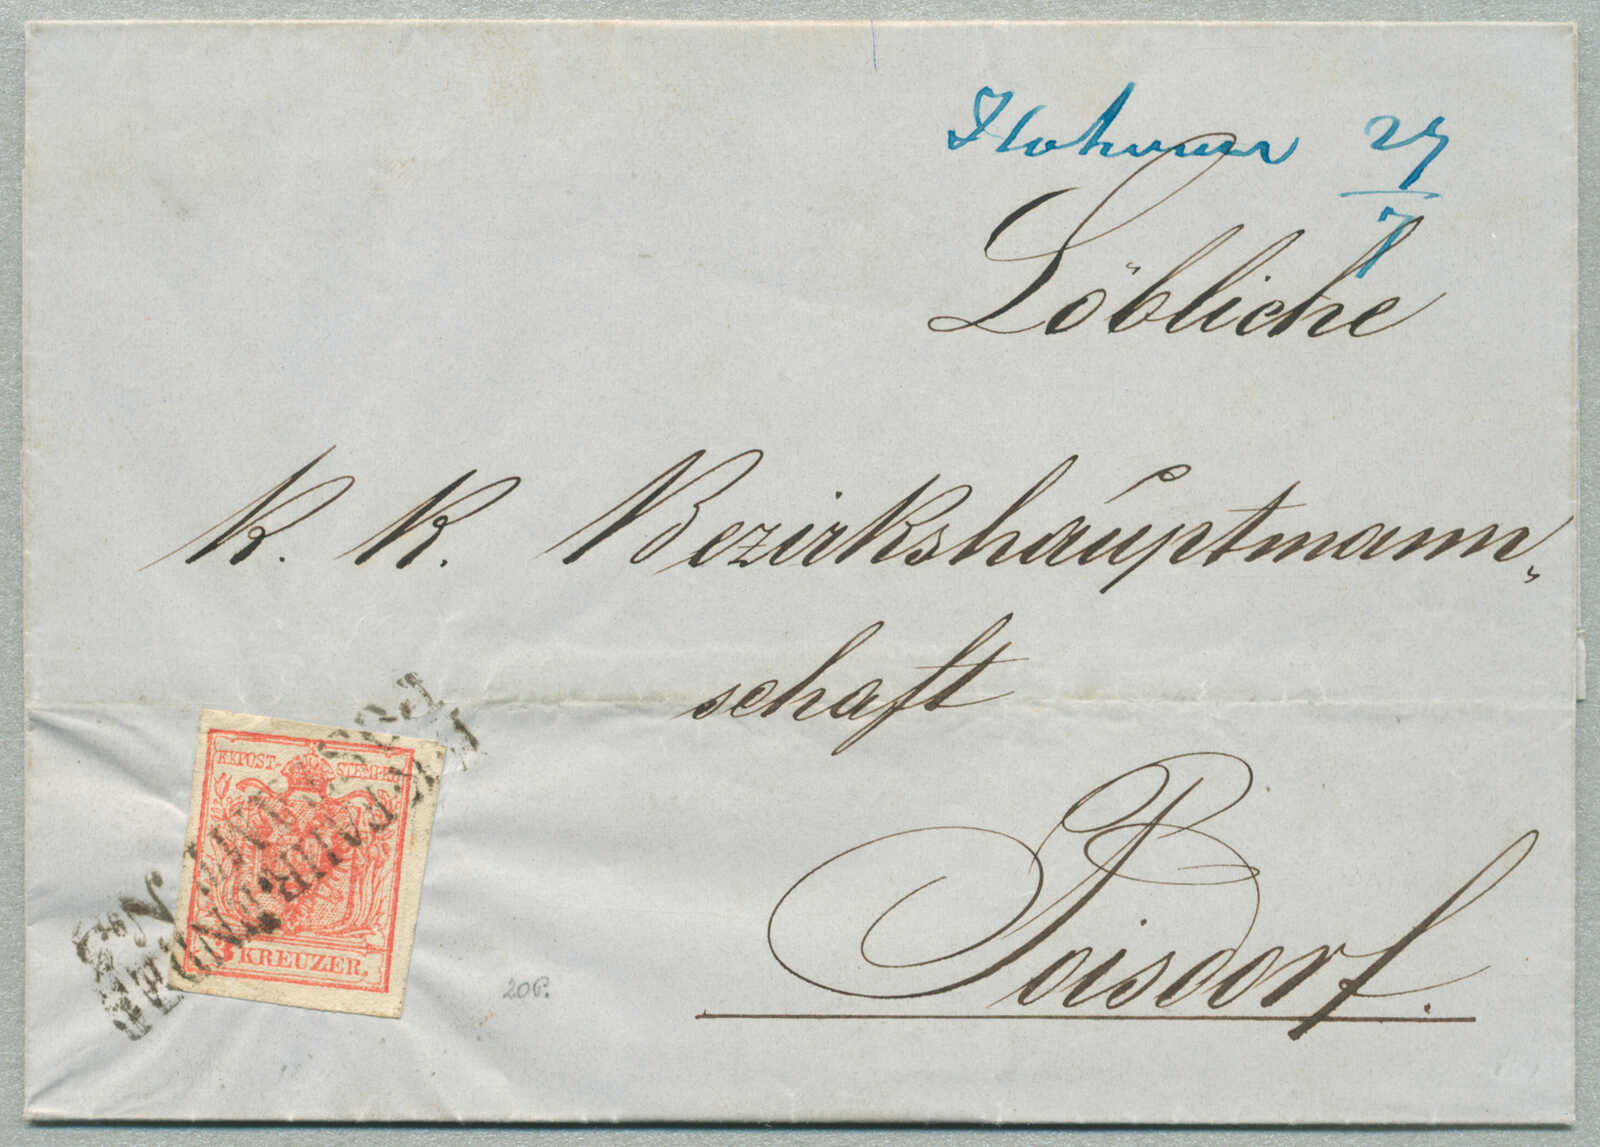 27
7
Löbliche
k. k. Bezirkshauptmann„
schaft
Poisdorf.
KKPOST-STEMPEL
3 KREUZER.
20P.